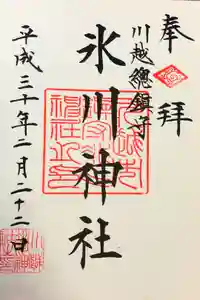 奉拝
川越總鎮守
氷川神社
平成三十年二月二十二日